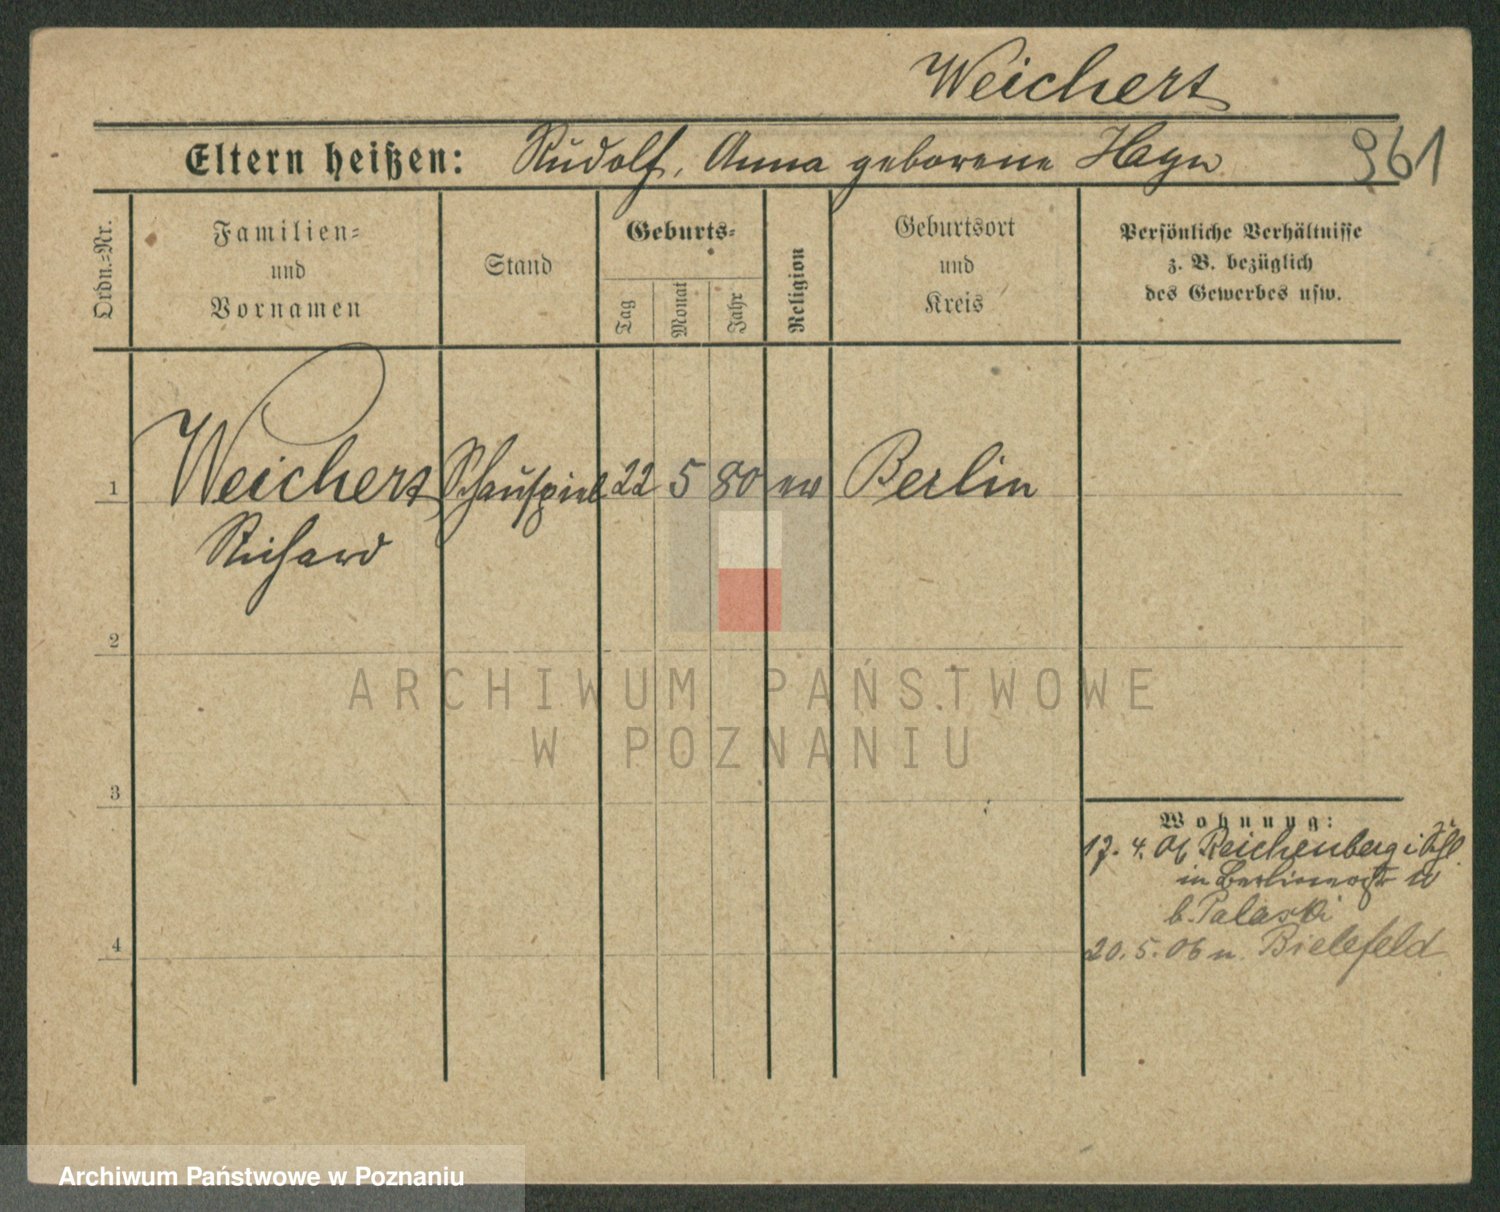 Weichert
Eltern heißen: Rudolf, Anna geborene Hayn 961
Ordn.-Nr.
Familien-
und
Vornamen
Stand
Geburts-
Tag
Monat
Jahr
Religion
Geburtsort
und
Kreis
Persönliche Verhältnisse
z. B. bezüglich
des Gewerbes usw.
1 Weichert Schauspiel 22 5 80 ev Berlin
Richard
2
ARCHIWUM PAŃSTWOWE
W POZNANIU
3
Wohnung:
17. 4. 06 Reichenberg i
in
b.
4
20. 5. 06 n. Bielefeld
Archiwum Państwowe w Poznaniu